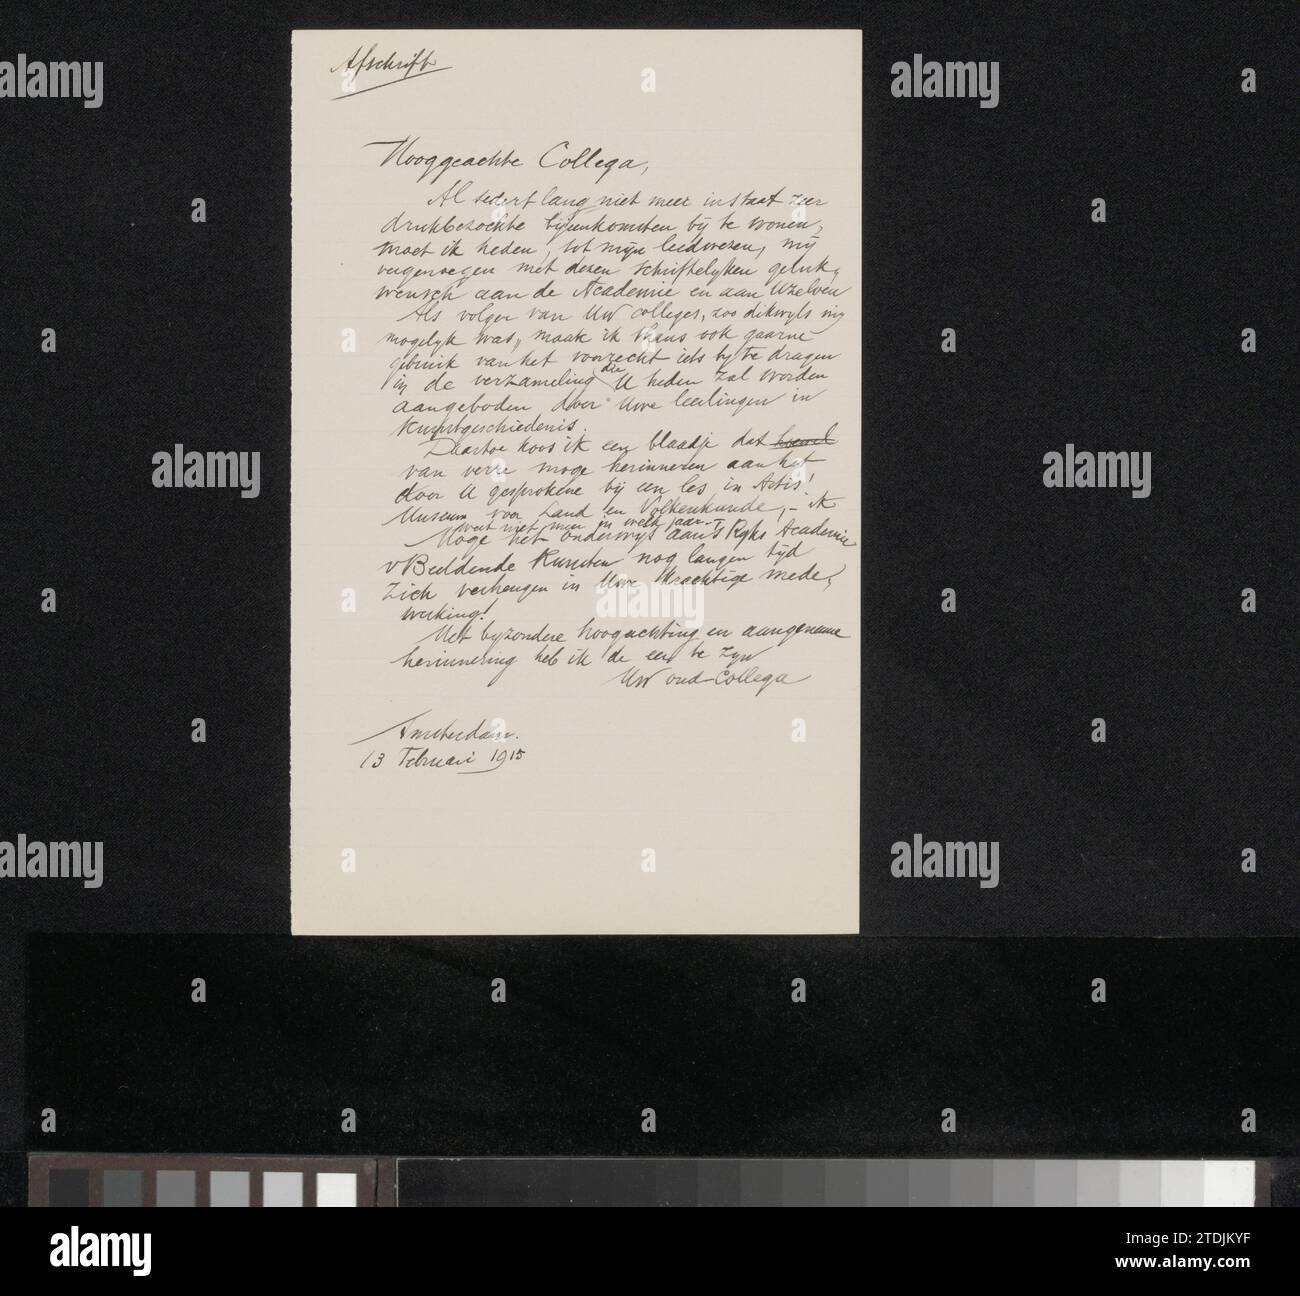 Afschrift
Hooggeachte Collega,
Al sedert lang niet meer in staat zeer
drukbezochte bijeenkomsten bij te wonen,
moet ik heden, tot mijn leedwezen, mij
vergenoegen met dezen schriftelyken geluk,
wensch aan de Academie en aan Uzelven
Als volger van Uw colleges, zoo dikwyls my
mogelyk was, maak ik thans ook gaarne
gebruik van het voorrecht iets by te dragen
in de verzameling die U heden zal worden
aangeboden door Uwe leerlingen in
Kunstgeschiedenis.
Daartoe koos ik een blaadje dat hoewel
van verre moge herinneren aan het
door U gesprokene bij een les in Artis'
Museum voor Land en Volkenkunde, - ik
weet niet meer in welk jaar -
Moge het onderwys aan 's Ryks Academie
v Beeldende Kunsten nog langen tyd
zich verheugen in Uwe krachtige mede,
werking!
Met byzondere hoogachting en aangename
herinnering heb ik de eer te zyn
Uw oud-Collega
Amsterdam.
13 Februari 1915
alamy
Image ID: 2TDJKYF
www.alamy.com